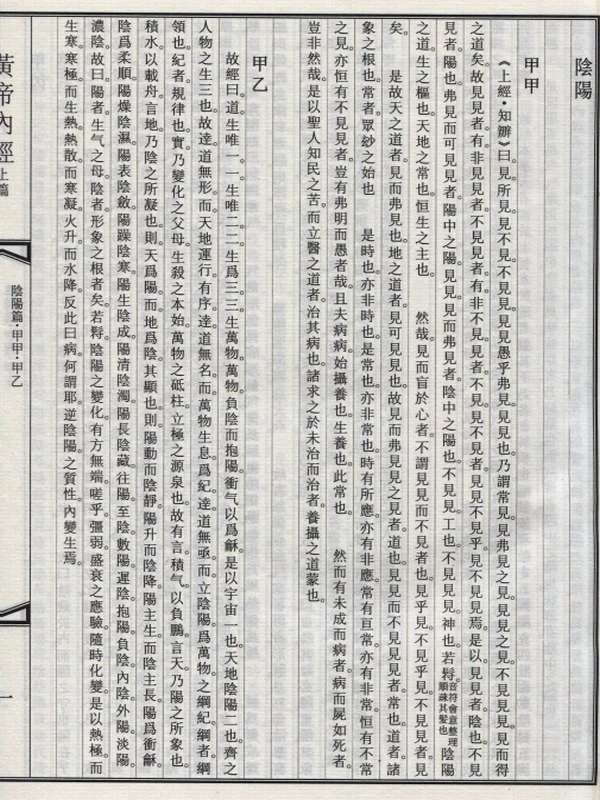 陰陽
甲甲
《上經·知辦》曰。見所見。見不見。不見見見愚乎。弗見見見也。乃謂常見。見弗見之見。見見之見。不見見見。見而得
之道矣。故見見者。有非見見者。不見見者。有非不見見者。不見見不見者。見見不見乎。見不見見焉。是以見見者。陰也。不見
見者。陽也。弗見而可見見者。陽中之陽。見見見而弗見者。陰中之陽也。不見見。工也。不見見見。神也。若䯱音符會意整理順疎其髮也陰陽
之道。生之樞也。天地之常也。恒生之主也。　然哉。見而盲於心者。不謂見見而不見者也。見乎見不見乎。見不見見者。見
矣。　是故天之道者。見而弗見也。地之道者。見可見見也。故見而弗見見之見者。道也。見見而不見見見者。常也。道者。諸
象之根也。常者。眾玅之始也　是時也。亦非時也。是常也。亦非常也。時有所應。亦有非應。常有亘常。亦有非常。恒有不常
之見。亦恒有不見見者。豈有弗明而愚者哉。且夫病。病始攝養也。生養也。此常也。　然而有未成而病者。病而屍如死者。
豈非然哉。是以聖人知民之苦。而立醫之道者。治其病也。諸求之於未治而治者。養攝之道蒙也。
甲乙
故經曰。道生唯一。一生唯二。二生爲三。三生萬物。萬物負陰而抱陽。衝气以爲龢。是以宇宙一也。天地陰陽二也。齊之
人物之生三也。故逹道無形。而天地運行有序。逹道無名。而萬物生息爲紀。逹道無亟。而立陰陽。爲萬物之綱紀。綱者。綱
領也。紀者。規律也。實乃變化之父母。生殺之本始。萬物之砥柱。立極之源泉也。故有言。積气以負鵬。言天乃陽之所象也。
積水以載舟。言地乃陰之所凝也。則天爲陽。而地爲陰。其顯也。則陽動而陰靜。陽升而陰降。陽主生而陰主長。陽爲衝龢
陰爲柔順。陽燥陰濕。陽表陰斂。陽躁陰寒。陽生陰成。陽清陰濁。陽長陰藏。往陽至陰。數陽遲陰。抱陽負陰。內陰外陽。淡陽
濃陰。故曰。陽者。生气之母。陰者。形象之根者矣。若䯱陰陽之變化。有方無端。嗟乎。彊弱。盛衰之應驗。隨時化變。是以熱極而
生寒。寒極而生熱。熱散而寒凝。火升而水降。反此曰病。何謂耶。逆陰陽之質性。內變生焉。
黃帝內經上篇
陰陽篇·甲甲·甲乙
一